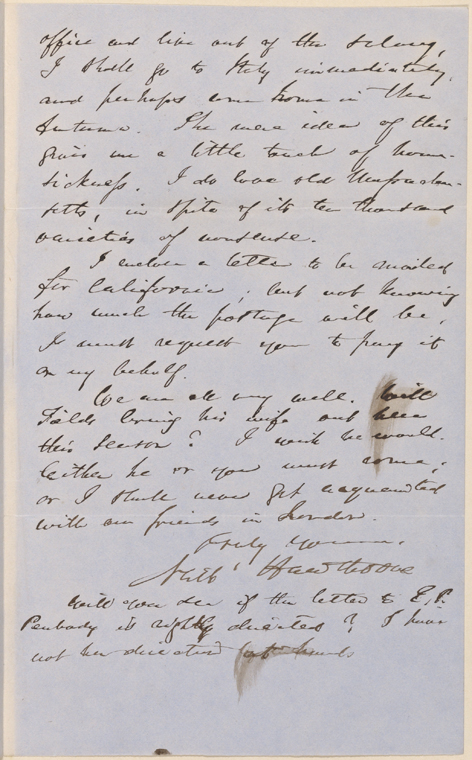 office and live out of the salary,
I shall go to Italy immediately,
and perhaps come home in the
Autumn. The mere idea of this
gives me a little touch of home-
sickness. I do love old Massachu-
setts, in spite of its ten thousand
varieties of nonsense.
I enclose a letter to be mailed
for California; but not knowing
how much the postage will be,
I must request you to pay it
on my behalf.
We are all very well. Will
Fields bring his wife out here
this season? I wish he would.
Either he or you must come,
or I shall never get acquainted
with our friends in London.
Truly Yours,
Nath' Hawthorne
Will you see if the letter to E. P.
Peabody is rightly directed? I have
not her direction at hand